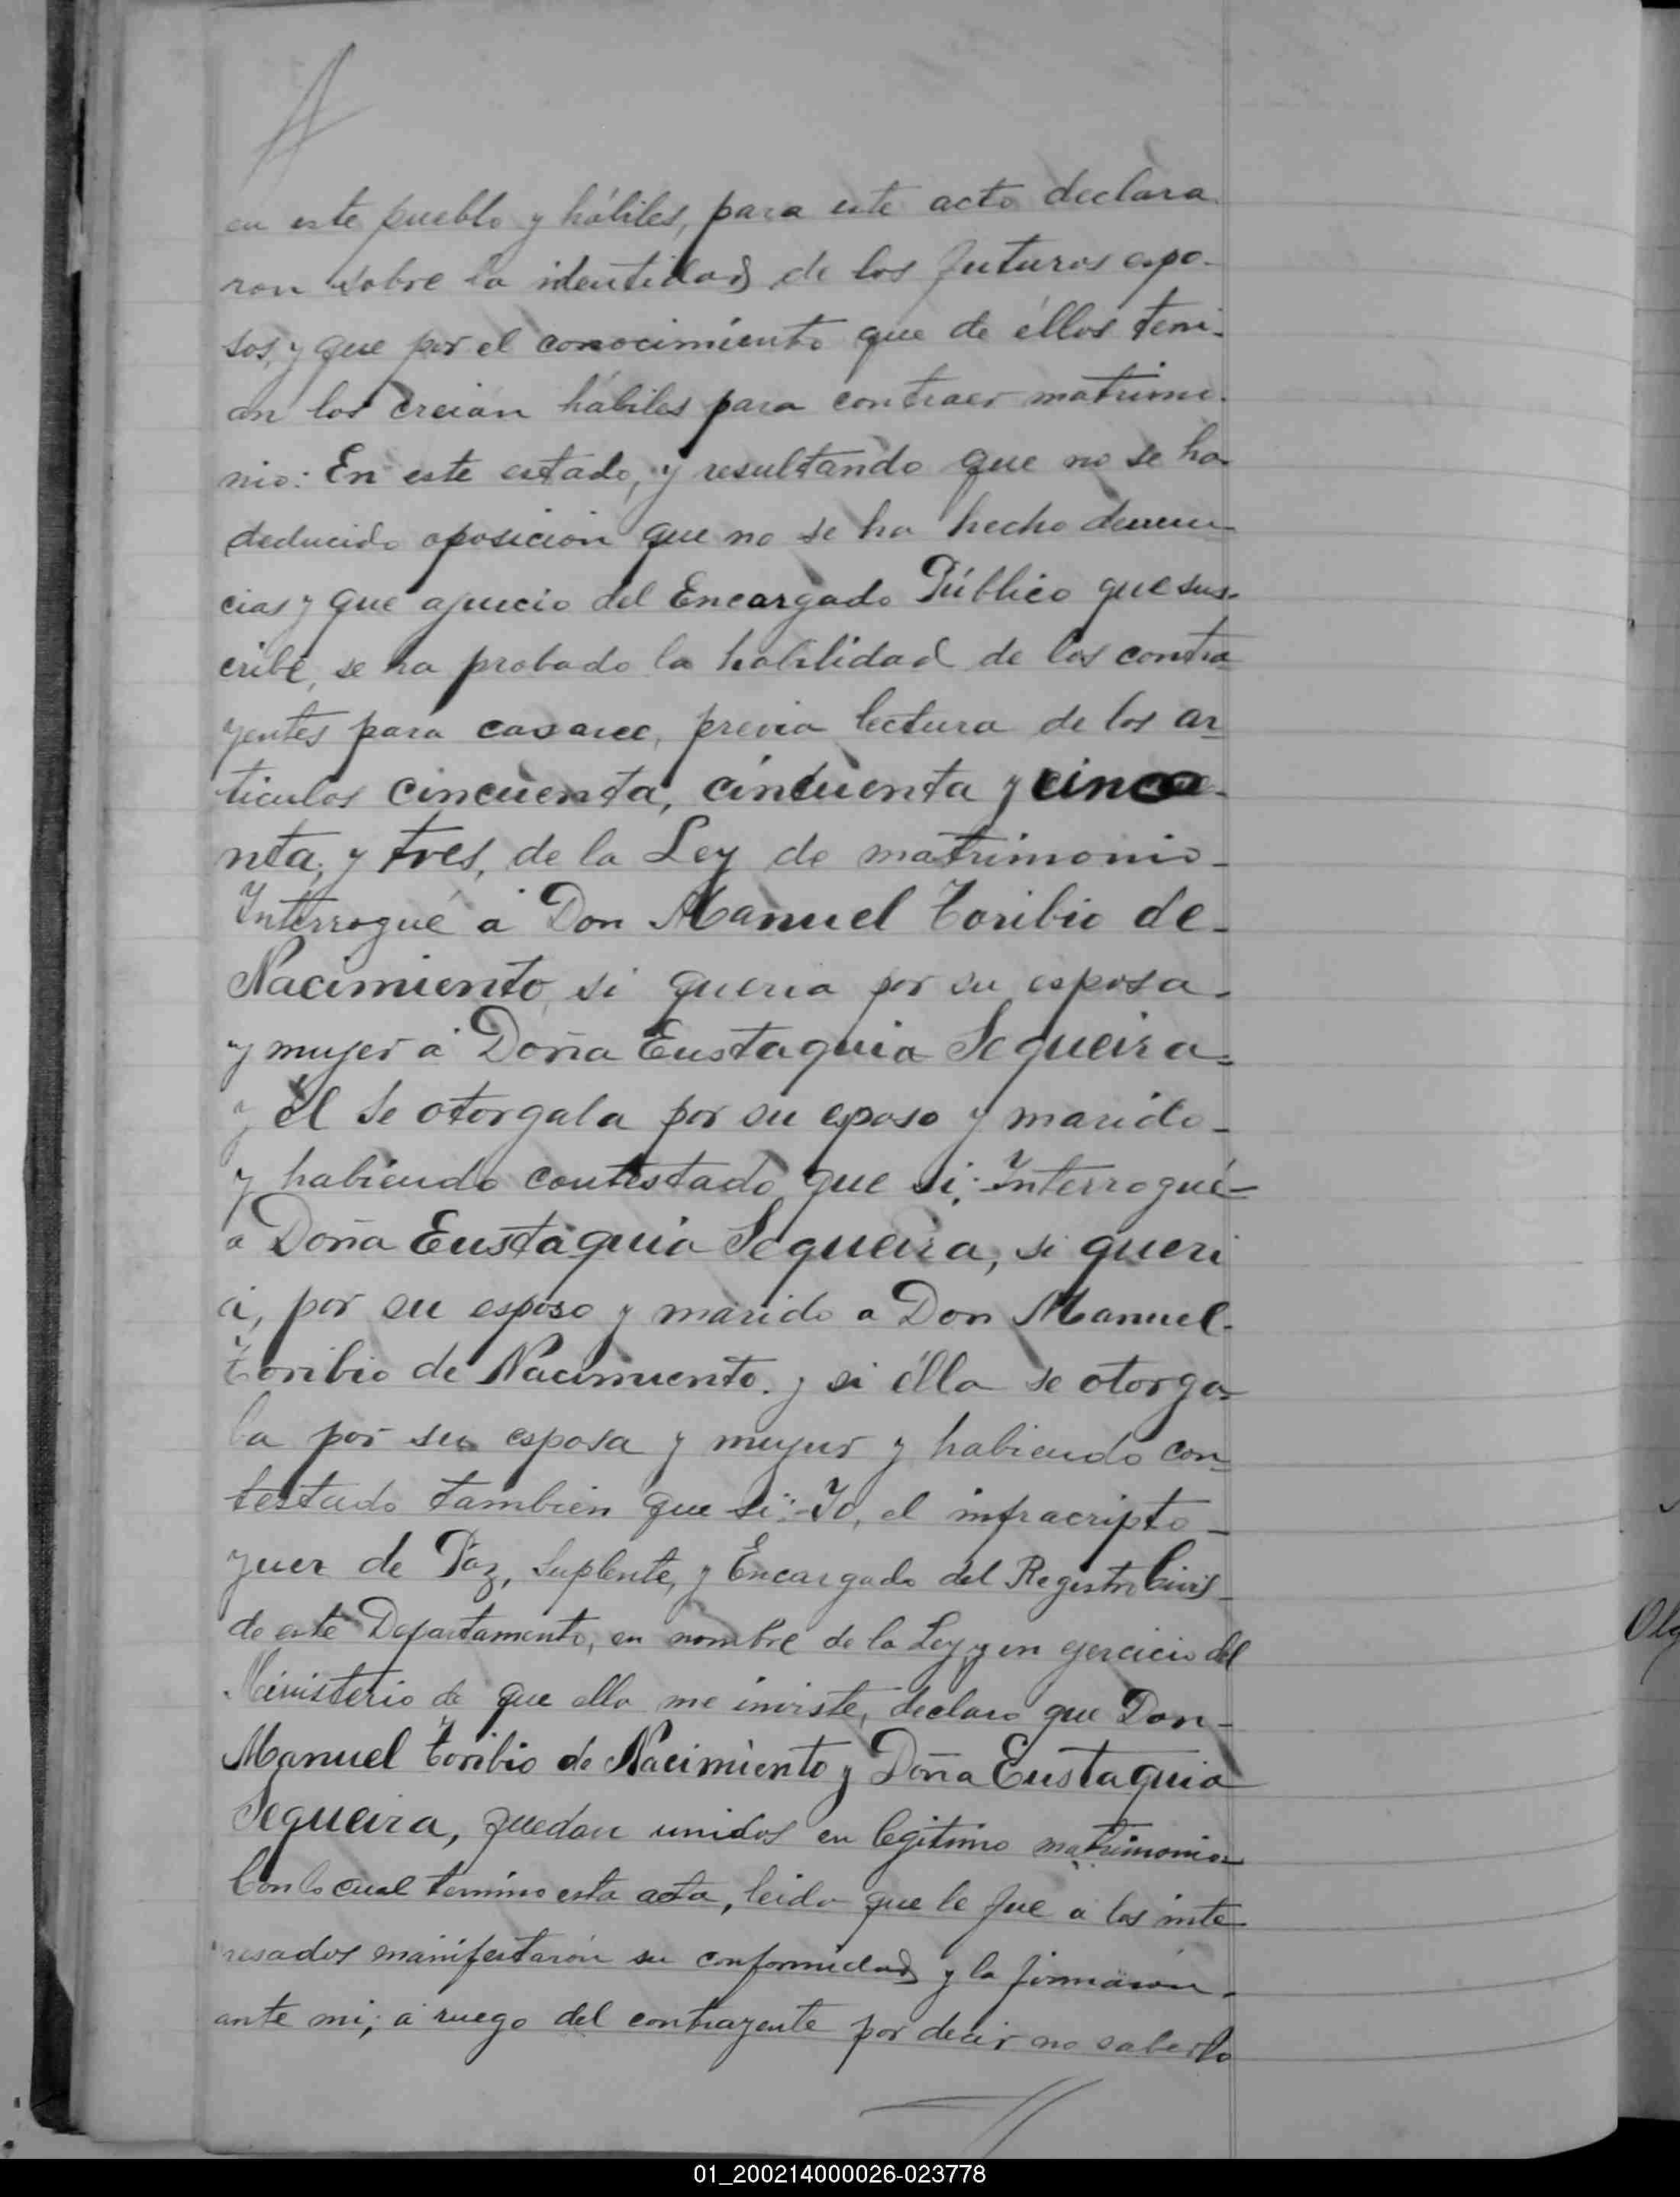 en este pueblo y hábiles, para este acto declara
ron sobre la identidad de los futuros espo-
sos, y que por el conocimiento que de éllos teni-
an los creian hábiles para contraer matrimo-
nio: En este estado, y resultando que no se ha
deducido oposicion que no se ha hecho denun-
cias y que ajuicio del Encargado Público que sus-
cribe, se ha probado la habilidad de los contra
yentes para casarce, previa lectura de los ar
ticulos cincuenta, cincuenta y cincue-
nta, y tres, de la Ley de matrimonio-
Interrogué á Don Manuel Toribio de-
Nacimiento, si queria por su esposa-
y mujer á Doña Eustaquia Sequeira-
y él se otorgala por su esposo y marido-
y habiendo contestado que si: Interrogué-
a Doña Eustaquia Sequeira, si queri
á, por su esposo y marido a Don Manuel-
Toribio de Nacimiento. y si élla se otorga-
ba por su esposa y mujer y habiendo con-
testado tambien que si: Yo, el infracripto-
juez de Paz, Suplente, y Encargado del Registro Civil-
de este Departamento, en nombre de la Ley y en ejercicio del
Ministerio de que ella me inviste, declaro que Don-
Manuel Toribio de Nacimiento y Doña Eustaquia
Sequeira, quedan unidos en legitimo matrimonio-
Con lo cual termino esta acta, leida que le fue a los inte-
resados manifestarón su conformidad y la firmarón-
ante mi; á ruego del contrayente por decir no saberlo
Olg
01_200214000026-023778